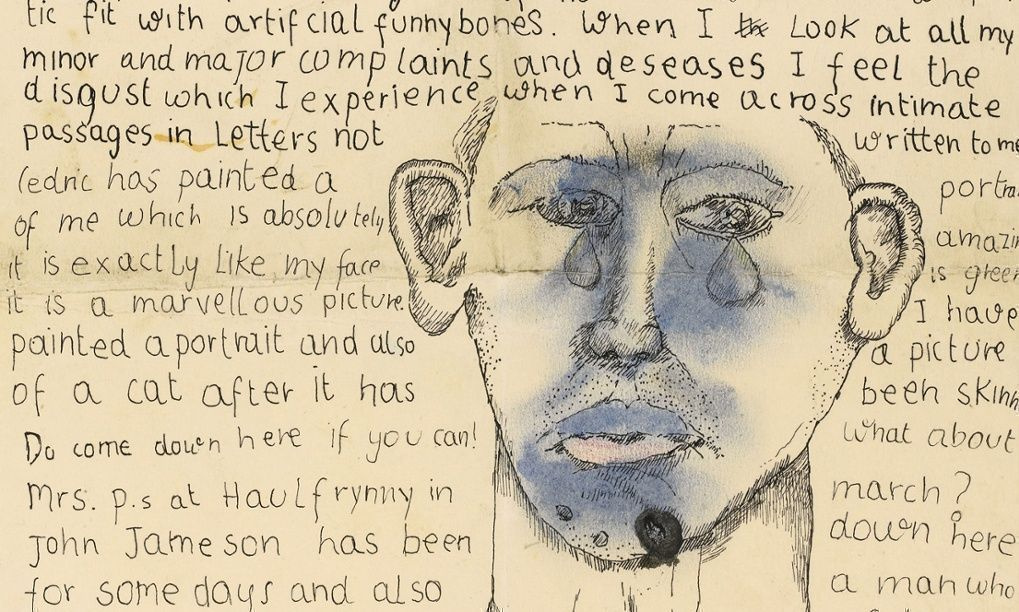 tic fit with artificial funnybones. When I the Look at all my
minor and major complaints and deseases I feel the
disgust which I experience when I come across intimate
passages in Letters not written to me
Cedric has painted a
of me which is absolutely amazing
it is exactly Like my face is green
it is a marvellous picture. I have
painted a portrait and also a picture
of a cat after it has been
Do come down here if you can! what about
Mrs. p.s at Haulfrynny in march?
John Jameson has been down here
for some days and also a man who